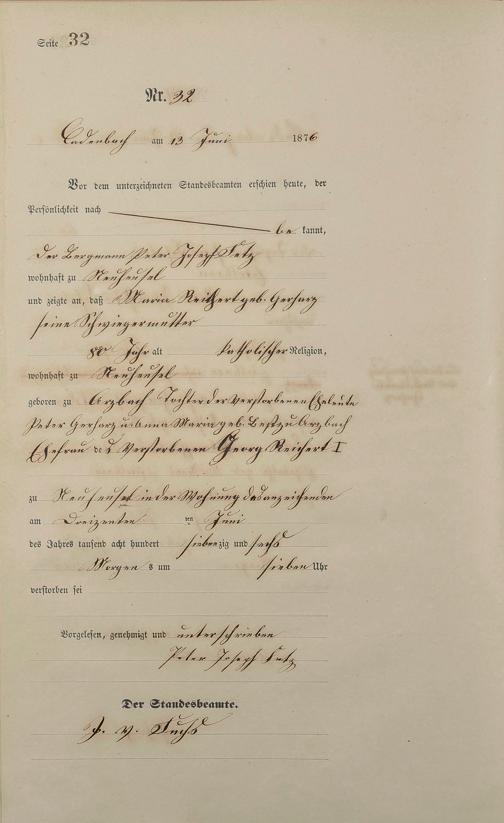 Seite 32
Nr. 32
Cadenbach am 13 Juni 1876
Vor dem unterzeichneten Standesbeamten erschien heute, der
Persönlichkeit nach
be kannt,
der Bergmann Peter Joseph
wohnhaft zu Neuheusel
und zeigte an, daß Maria Reichert geb. Gerharz
seine Schwiegermutter
80 Jahr alt katholischer Religion,
wohnhaft zu Neuheusel
geboren zu Arzbach Tochter der verstorbenen Eheleute
Peter Gerharz u Anna Maria geb. zu Arzbach
Ehefrau des verstorbenen Georg Reichert I
zu Neuheusel in der Wohnung des anzeichenden
am Dreizenten ten Juni
des Jahres tausend acht hundert siebenzig und sechs
Morgen s um sieben Uhr
verstorben sei
Vorgelesen, genehmigt und unterschrieben
Peter Joseph
Der Standesbeamte.
v. Fuchs